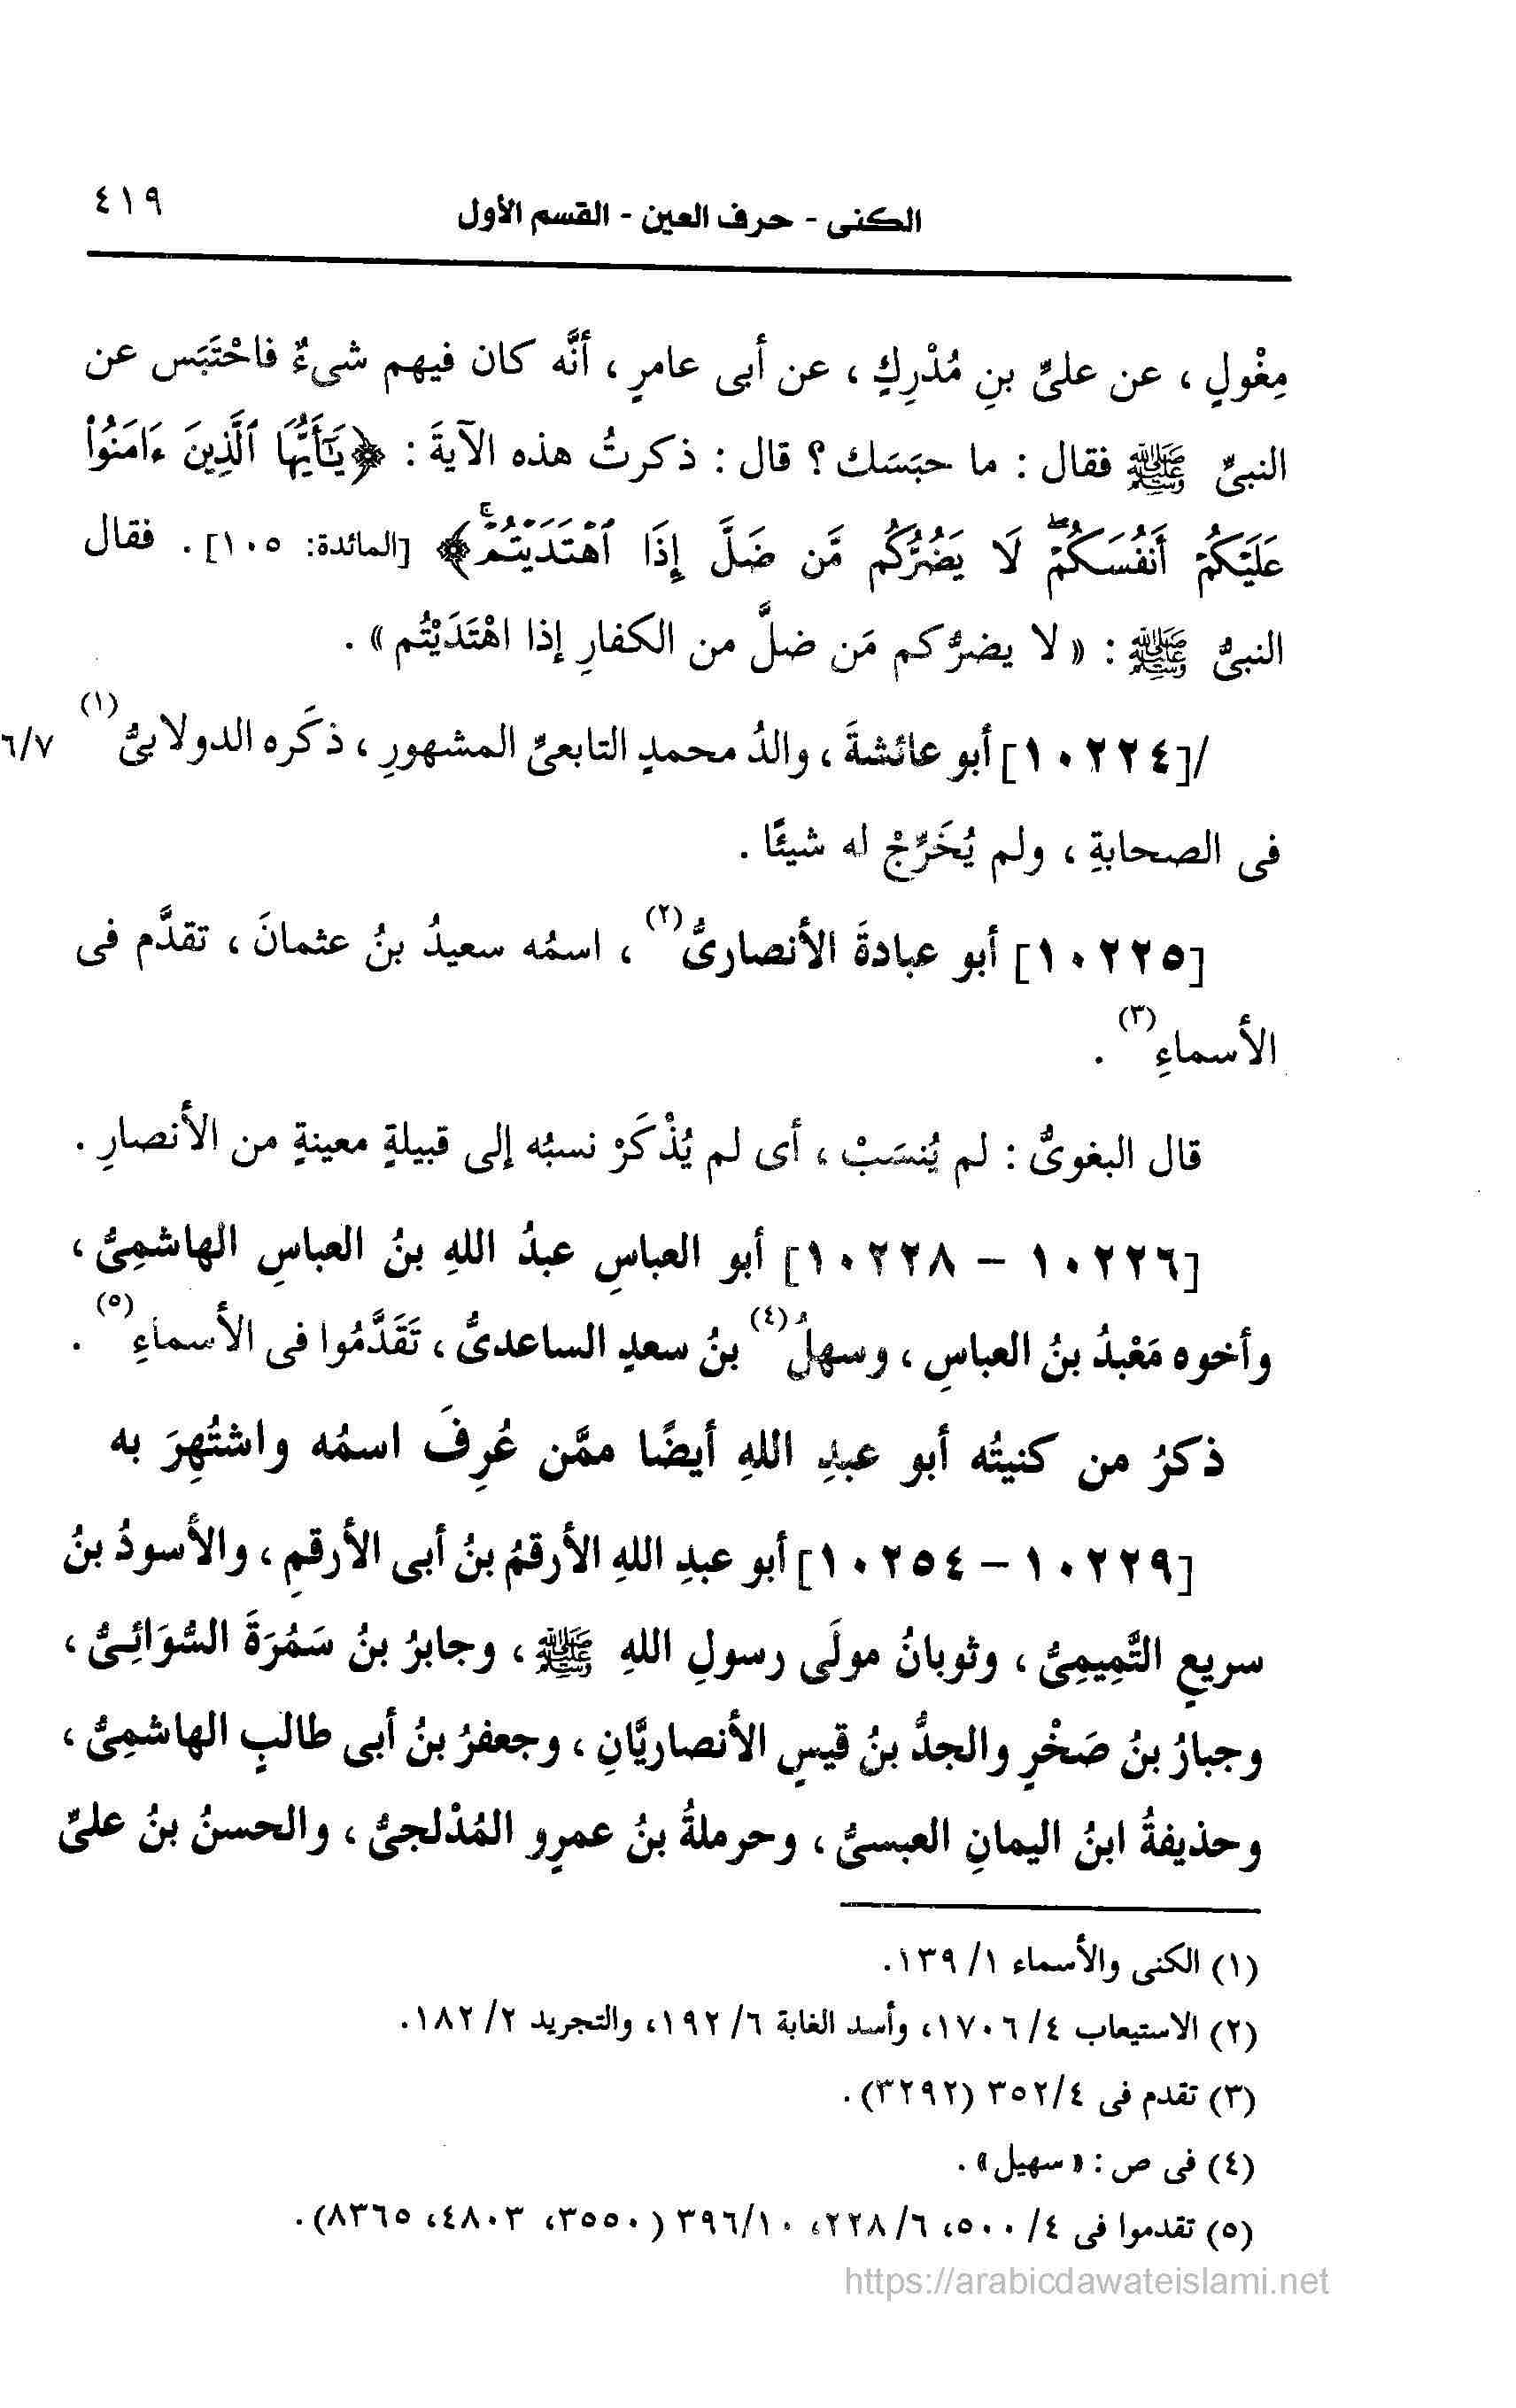 الكنى - حرف العين - القسم الأول ٤١٩
مِغْولٍ ، عن علىِّ بنِ مُدْرِكٍ ، عن أبى عامرٍ ، أنَّه كان فيهم شىءٌ فاحْتَبَس عن
النبىِّ ﷺ فقال : ما حبَسَك ؟ قال : ذكرتُ هذه الآيةَ : ﴿يَٰٓأَيُّهَا ٱلَّذِينَ ءَامَنُوا۟
عَلَيْكُمْ أَنفُسَكُمْ ۖ لَا يَضُرُّكُم مَّن ضَلَّ إِذَا ٱهْتَدَيْتُمْ ۚ﴾ [المائدة: ١٠٥] . فقال
النبىُّ ﷺ : « لا يضرُّكم مَن ضلَّ من الكفارِ إذا اهْتَدَيْتُم » .
/[١٠٢٢٤] أبو عائشةَ ، والدُ محمدٍ التابعىِّ المشهورِ ، ذكَره الدولابىُّ(١) ٦/٧
فى الصحابةِ ، ولم يُخَرِّجْ له شيئًا .
[١٠٢٢٥] أبو عبادةَ الأنصارىُّ(٢) ، اسمُه سعيدُ بنُ عثمانَ ، تقدَّم فى
الأسماءِ(٣) .
قال البغوىُّ : لم يُنسَبْ ، أى لم يُذْكَرْ نسبُه إلى قبيلةٍ معينةٍ من الأنصارِ .
[١٠٢٢٦ - ١٠٢٢٨] أبو العباسِ عبدُ اللهِ بنُ العباسِ الهاشمِىُّ ،
وأخوه مَعْبدُ بنُ العباسِ ، وسهلُ(٤) بنُ سعدٍ الساعدىُّ ، تَقَدَّمُوا فى الأسماءِ(٥) .
ذكرُ من كنيتُه أبو عبدِ اللهِ أيضًا ممَّن عُرِفَ اسمُه واشتُهِرَ به
[١٠٢٢٩ - ١٠٢٥٤] أبو عبدِ اللهِ الأرقمُ بنُ أبى الأرقمِ ، والأسودُ بنُ
سريعٍ التَّمِيمِىُّ ، وثوبانُ مولَى رسولِ اللهِ ﷺ ، وجابرُ بنُ سَمُرَةَ السُّوَائِىُّ ،
وجبارُ بنُ صَخْرٍ والجدُّ بنُ قيسٍ الأنصاريَّانِ ، وجعفرُ بنُ أبى طالبٍ الهاشمِىُّ ،
وحذيفةُ ابنُ اليمانِ العبسىُّ ، وحرملةُ بنُ عمرٍو المُدْلجىُّ ، والحسنُ بنُ علىِّ
(١) الكنى والأسماء ١/ ١٣٩.
(٢) الاستيعاب ٤/ ١٧٠٦، وأسد الغابة ٦/ ١٩٢، والتجريد ٢/ ١٨٢.
(٣) تقدم فى ٣٥٢/٤ (٣٢٩٢).
(٤) فى ص : « سهيل » .
(٥) تقدموا فى ٤/ ٥٠٠، ٦/ ٢٢٨، ٣٩٦/١٠ (٣٥٥٠، ٤٨٠٣، ٨٣٦٥).
https://arabicdawateislami.net